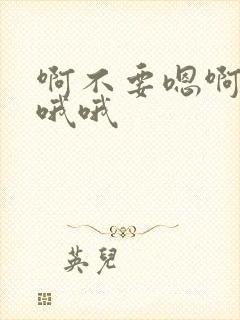 啊不要嗯啊
哦哦
英兒